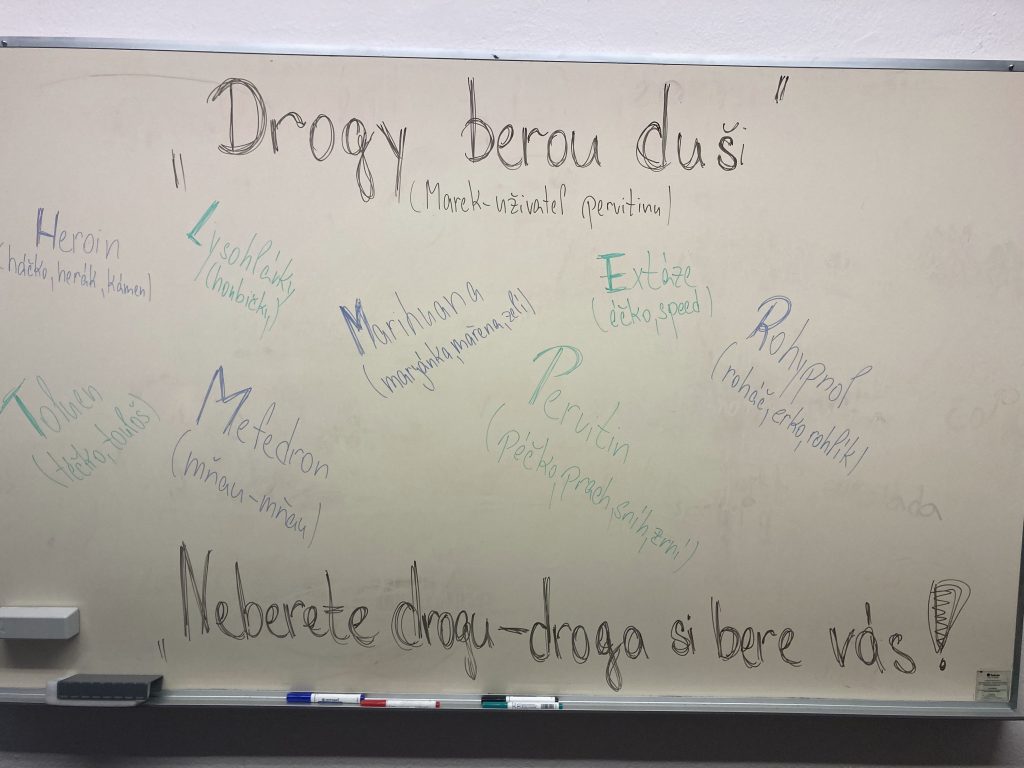 „Drogy berou duši"
(Marek-uživatel pervitinu)
Heroin
(háčko, herák, kámen)
Lysohlávky
(houbičky)
Marihuana
(maryánka, mařena, zelí)
Extáze
(éčko, speed)
Rohypnol
(roháč, erko, rohlík)
Toluen
(téčko, touloš)
Mefedron
(mňau-mňau)
Pervitin
(péčko, prach, sníh, zrní)
„Neberete drogu-droga si bere vás!